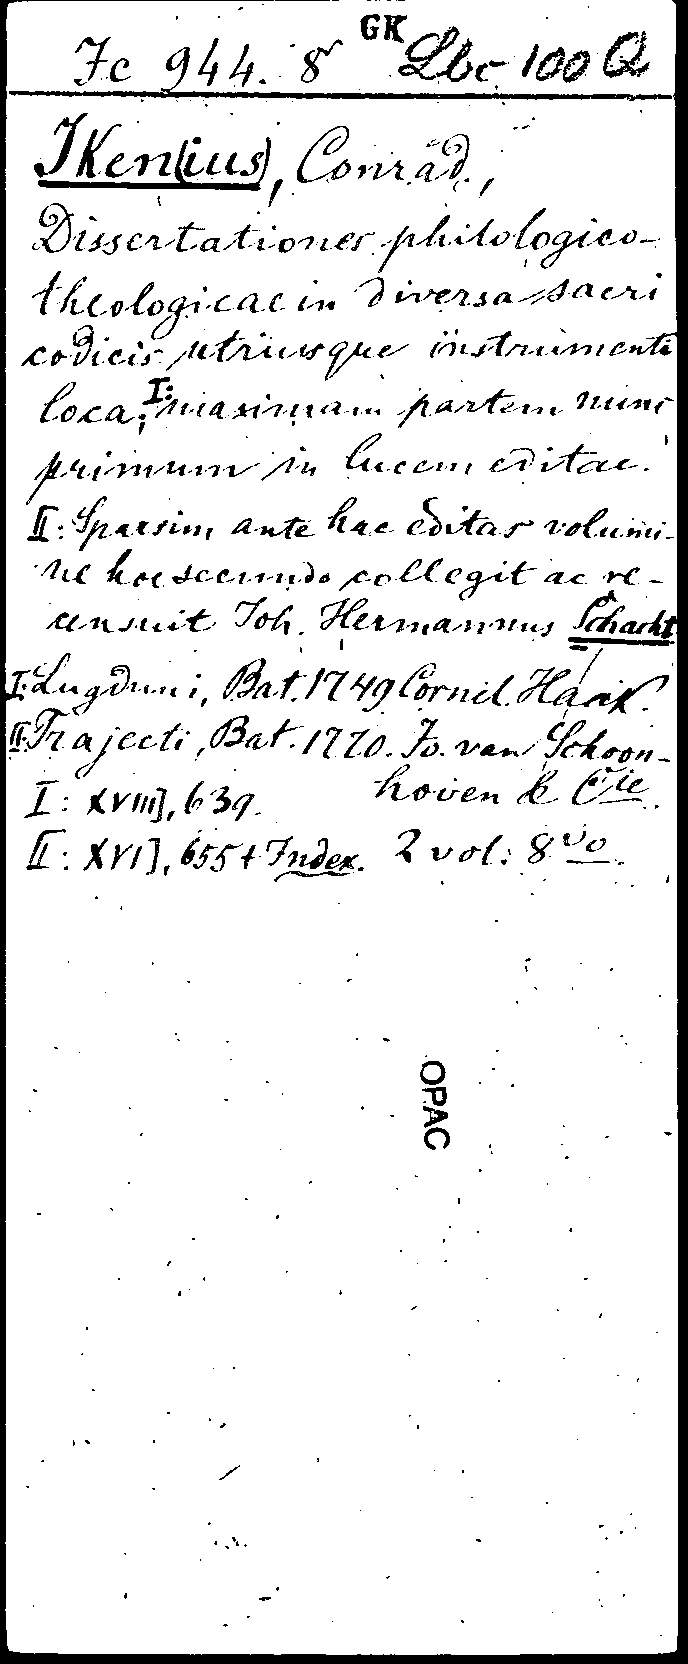 GK
Fc 944. 8 Lbc 100 Q
IKen(ius), Conrad.,
Dissertationes philologico-
theologicae in diversa sacri
codicis utriusque instrumenti
loca, I: maximam partem nunc
primum in lucem editae.
II: Sparsim ante hac editas volumi-
ne hoc secundo collegit ac re-
censuit Joh. Hermannus Schacht
I: Lugduni, Bat. 1749 Cornel. Haak.
II: Trajecti, Bat. 1770. Jo. van Schoon-
hoven & Cie.
I: XVIII], 639.
II: XVI], 655 + Index. 2 vol: 8vo.
OPAC